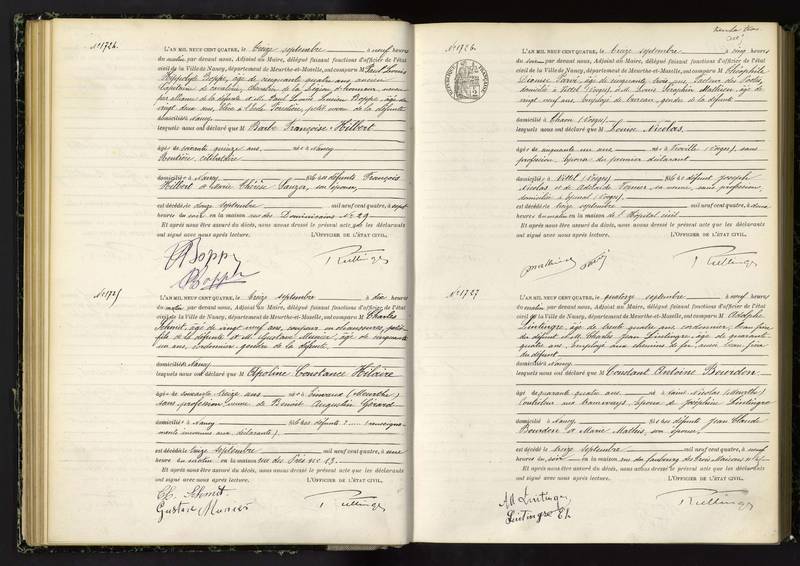 N°1724.
L'AN MIL NEUF CENT QUATRE, le treize septembre à neuf heures
du matin par devant nous, Adjoint au Maire, délégué faisant fonctions d'officier de l'état
civil de la Ville de Nancy, département de Meurthe-et-Moselle, ont comparu M Paul Louis
Hippolyte Boppe, âgé de cinquante quatre ans, ancien
Capitaine de cavalerie, Chevalier de la Légion d'honneur, neveu
par alliance de la défunte et M. Paul Louis Lucien Boppe, âgé de
vingt deux ans, élève à l'école forestière, petit neveu de la défunte
domiciliés à Nancy
lesquels nous ont déclaré que M Barbe Françoise Hilbert
âgée de soixante quinze ans née à Nancy
Rentière, célibataire
domiciliée à Nancy fille de défunts François
Hilbert et Marie Thérèse son épouse,
est décédée le douze septembre mil neuf cent quatre, à sept
heures du soir en la maison rue des Dominicains N° 29
Et après nous être assuré du décès, nous avons dressé le présent acte que les déclarants
ont signé avec nous après lecture. L'OFFICIER DE L'ÉTAT CIVIL,
Boppe
Boppe
N°1725
L'AN MIL NEUF CENT QUATRE, le treize septembre à dix heures
du matin par devant nous, Adjoint au Maire, délégué faisant fonctions d'officier de l'état
civil de la Ville de Nancy, département de Meurthe-et-Moselle, ont comparu M Charles
Schmit, âgé de vingt neuf ans, coupeur en chaussures, petit-
fils de la défunte et M. Gustave Munier, âgé de cinquante
un ans, cordonnier, gendre de la défunte
domiciliés à Nancy
lesquels nous ont déclaré que M Apoline Constance Hilaire
âgée de soixante treize ans née à (Meurthe)
sans profession, veuve de Benoît Augustin Gérard
domiciliée à Nancy fille de défunts ? ..... (renseigne-
ments inconnus aux déclarants).
est décédée le treize septembre mil neuf cent quatre, à une
heure du matin en la maison rue des Prés N° 13.
Et après nous être assuré du décès, nous avons dressé le présent acte que les déclarants
ont signé avec nous après lecture. L'OFFICIER DE L'ÉTAT CIVIL,
Ch. Schmit
Gustave Munier
N°1726.
L'AN MIL NEUF CENT QUATRE, le treize septembre à cinq heures
du soir par devant nous, Adjoint au Maire, délégué faisant fonctions d'officier de l'état
civil de la Ville de Nancy, département de Meurthe-et-Moselle, ont comparu M Théophile
âgé de cinquante trois ans, facteur des Postes,
domicilié à Vittel (Vosges) et M. Louis Séraphin Mathieu, âgé de
vingt neuf ans, employé de bureau, gendre de la défunte
domicilié à Thaon (Vosges)
lesquels nous ont déclaré que M Louise Nicolas,
âgée de cinquante un ans née à (Vosges) sans
profession, épouse du premier déclarant
domiciliée à Vittel (Vosges) fille de défunt Joseph
Nicolas et de Adélaïde sa veuve, sans profession,
domiciliée à Epinal (Vosges)
est décédée le treize septembre mil neuf cent quatre, à deux
heures du matin en la maison de l'Hôpital civil
Et après nous être assuré du décès, nous avons dressé le présent acte que les déclarants
ont signé avec nous après lecture. L'OFFICIER DE L'ÉTAT CIVIL,
N°1727
L'AN MIL NEUF CENT QUATRE, le quatorze septembre à neuf heures
du matin par devant nous, Adjoint au Maire, délégué faisant fonctions d'officier de l'état
civil de la Ville de Nancy, département de Meurthe-et-Moselle, ont comparu M Adolphe
Lintingre, âgé de trente quatre ans, cordonnier, beau frère
du défunt et M. Charles Jean Lintingre, âgé de quarante-
quatre ans, employé aux chemins de fer, aussi beau frère
du défunt
domiciliés à Nancy
lesquels nous ont déclaré que M Constant Antoine Bourdon
âgé de quarante quatre ans né à Saint Nicolas (Meurthe)
Contrôleur aux tramways, époux de Joséphine Lintingre
domicilié à Nancy, fils de défunts Jean Claude
Bourdon et Marie Mathis, son épouse,
est décédé le treize septembre mil neuf cent quatre, à neuf
heures du soir en la maison rue du faubourg des Trois Maisons
Et après nous être assuré du décès, nous avons dressé le présent acte que les déclarants
ont signé avec nous après lecture. L'OFFICIER DE L'ÉTAT CIVIL,
Ad Lintingre
Lintingre Ch